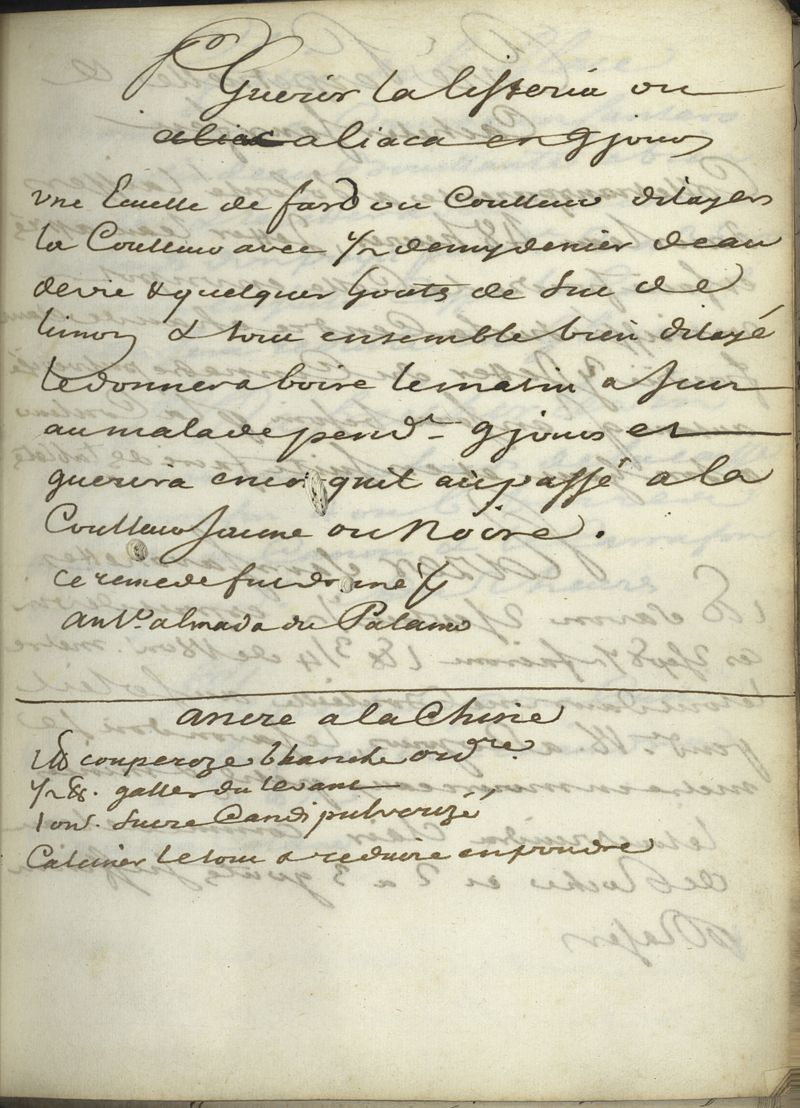 Pr Guerir la listeria ou
aliaca en 9 jours
une Ecuelle de fard ou Coulleur dilayers
la Coulleur avec 1/2 demy denier deau
devie & quelques gouts de suc de
limon & tout ensemble bien dilayé
le donner a boire le matin a jeun
au malade pend.t 9 jours et
guerira encor quil aie passé a la
Coulleur Jaune ou Noire.
ce remede fut donné
ant.o almada du Palamo
ancre a la Chine
1 lb couperoze blanche ord.re
1/2 lb. galles du levant
1 on. sucre Candi pulverizé
Calciner le tout & reduire en poudre